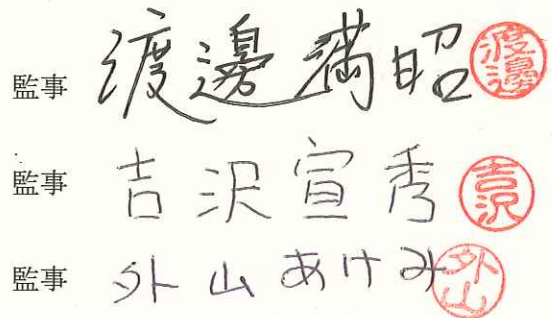 監事 渡邊満昭 渡邊
監事 吉沢宣秀 吉沢
監事 外山あけみ 外山